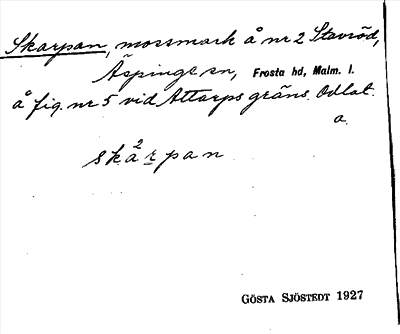 Skarpan, mossmark å nr 2 Stavröd,
Äspinge sn, Frosta hd, Malm. l.
å fig. nr 5 vid Attarps gräns. Odlat.
a.
skа̊²r̲pan
GÖSTA SJÖSTEDT 1927